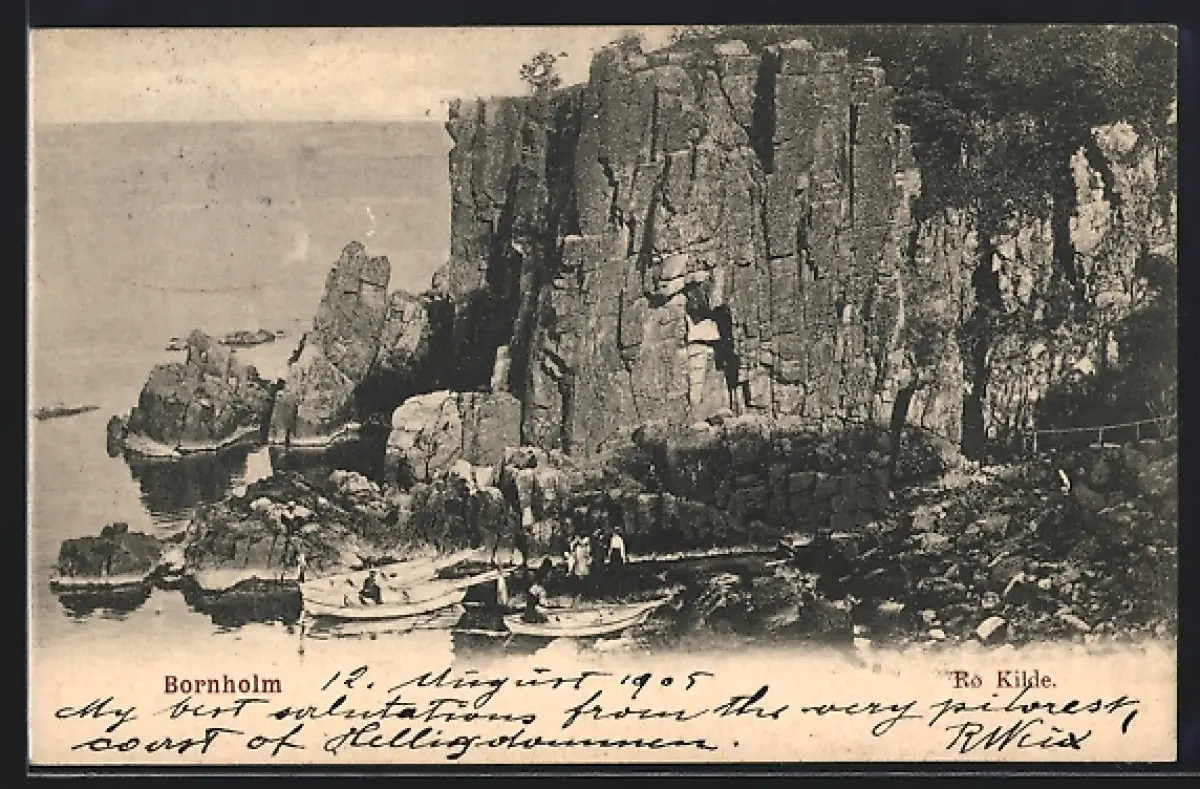 Bornholm 12. August 1905 Rø Kilde.
My best salutations from the very pitorest,
coast of Helligdommen.